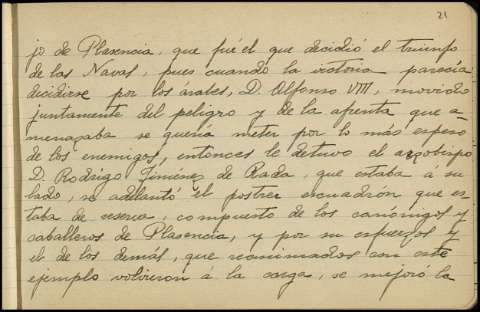 21
jo de Plasencia, que fué el que decidió el triunfo
de las Navas, pues cuando la victoria parecía
decidirse por los árabes, D. Alfonso VIII, movido
juntamente del peligro y de la afrenta que a-
menazaba se quería meter por lo más espeso
de los enemigos, entonces le detuvo el arzobispo
D. Rodrigo Jiménez de Rada, que estaba á su
lado, se adelantó el postrer escuadrón que es-
taba de reserva, compuesto de los canónigos y
caballeros de Plasencia, y por su esfuerzo y
el de los demás, que reanimados con este
ejemplo volvieron á la carga, se mejoró la